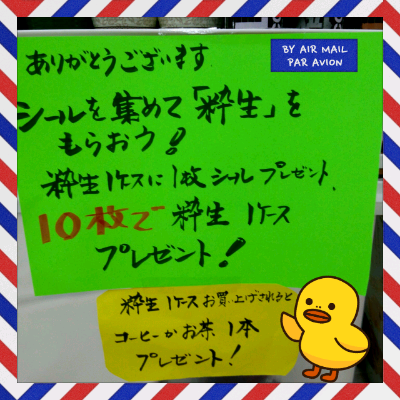 BY AIR MAIL
PAR AVION
ありがとうございます
シールを集めて「粋生」を
もらおう!
粋生1ケースに1枚シールプレゼント、
10枚で粋生1ケース
プレゼント!
粋生1ケースお買い上げされると
コーヒーかお茶1本
プレゼント!